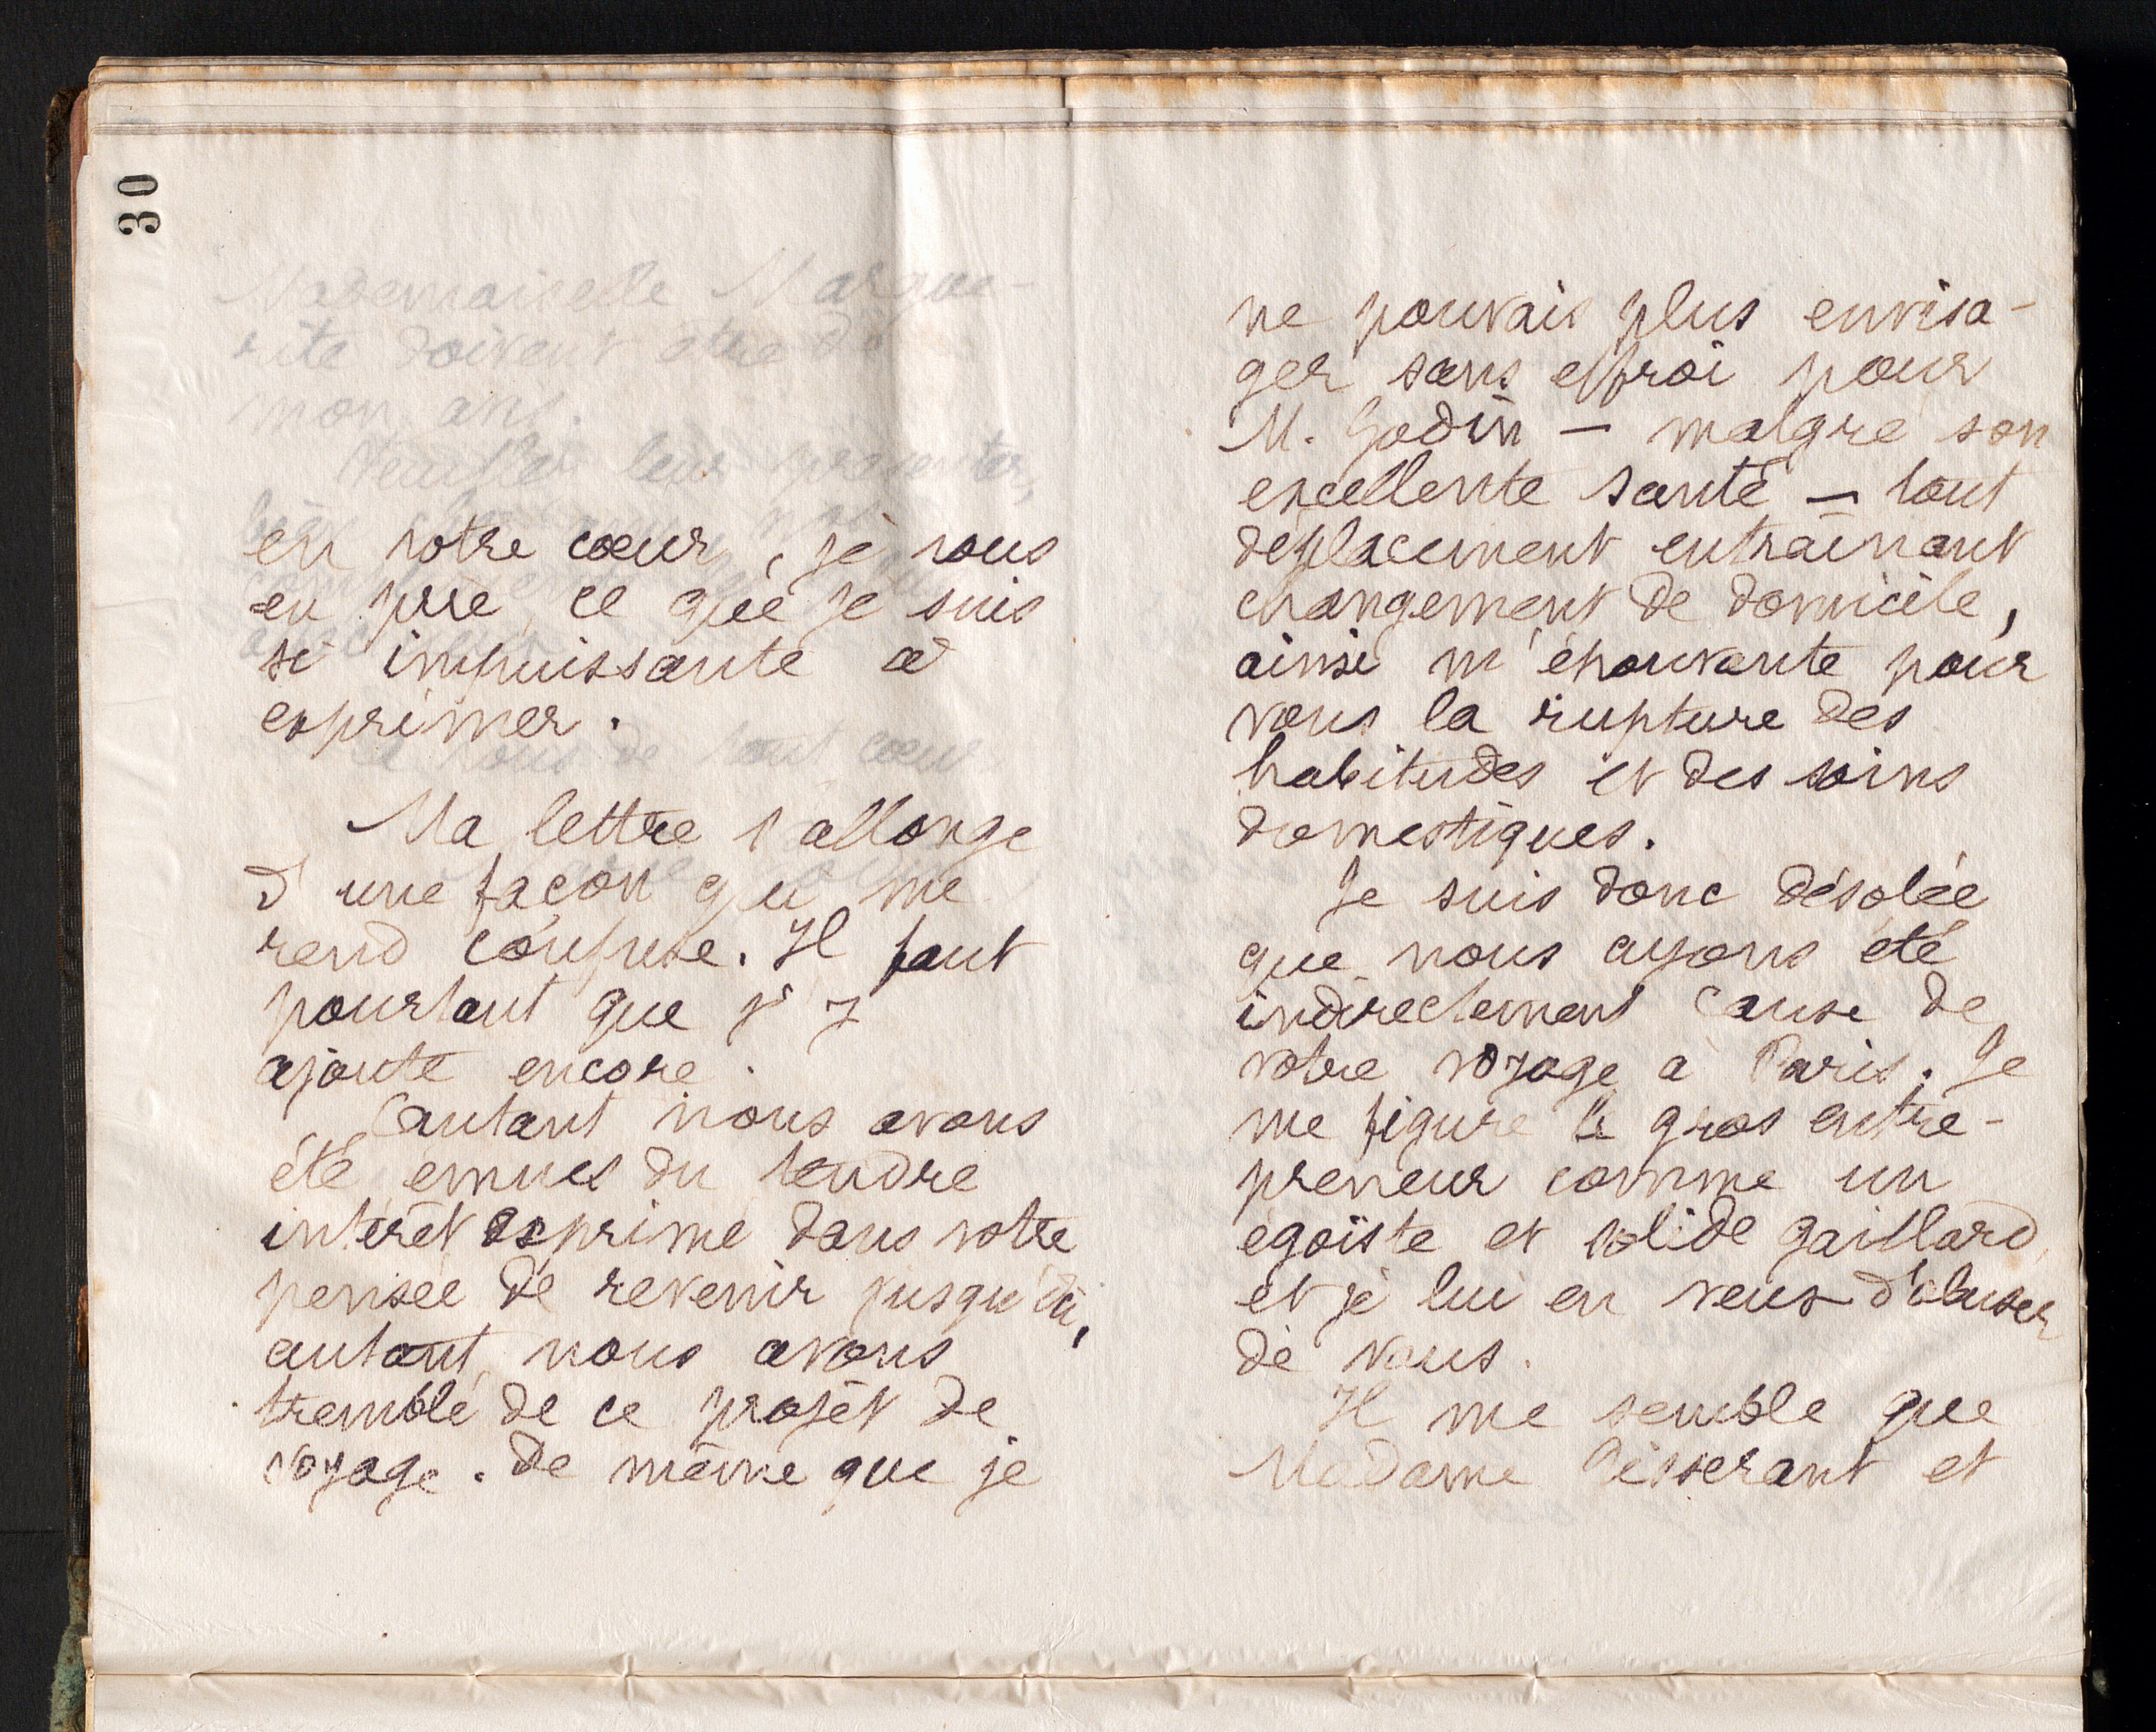 30
Mademoiselle Margue-
rite doivent être de
mon avis.
Veuillez leur présenter,
en votre cœur, je vous
en prie, ce que je suis
si impuissante à
exprimer.
de tout cœur
Ma lettre s'allonge
d'une façon qui me
rend confuse. Il faut
pourtant que j'y
ajoute encore.
Autant nous avons
été émues du tendre
intérêt exprimé dans votre
pensée de revenir jusqu'ici,
autant nous avons
tremblé de ce projet de
voyage. De même que je
ne pouvais plus envisa-
ger sans effroi pour
M. Godin — malgré son
excellente santé — tout
déplacement entraînant
changement de domicile,
ainsi m'épouvante pour
vous la rupture des
habitudes et des soins
domestiques.
Je suis donc désolée
que nous ayons été
indirectement cause de
votre voyage à Paris. Je
me figure le gros entre-
preneur comme un
égoïste et solide gaillard,
et je lui en veux d'abuser
de vous.
Il me semble que
Madame Tisserant et